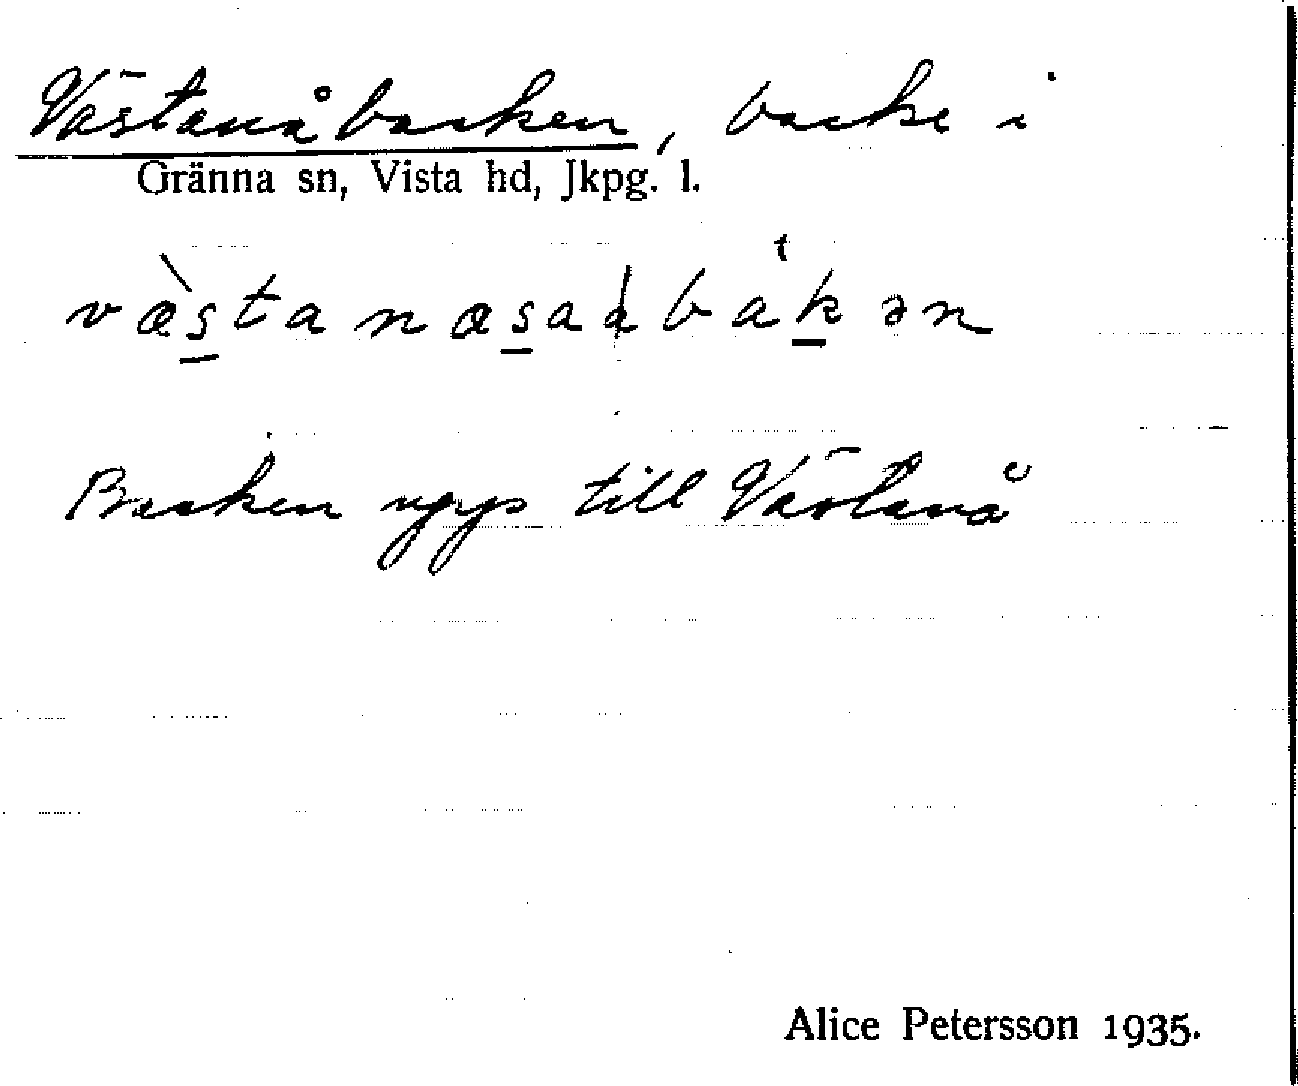 Västanåbacken, backe i
Gränna sn, Vista hd, Jkpg. l.
Backen upp till Västanå
Alice Petersson 1935.